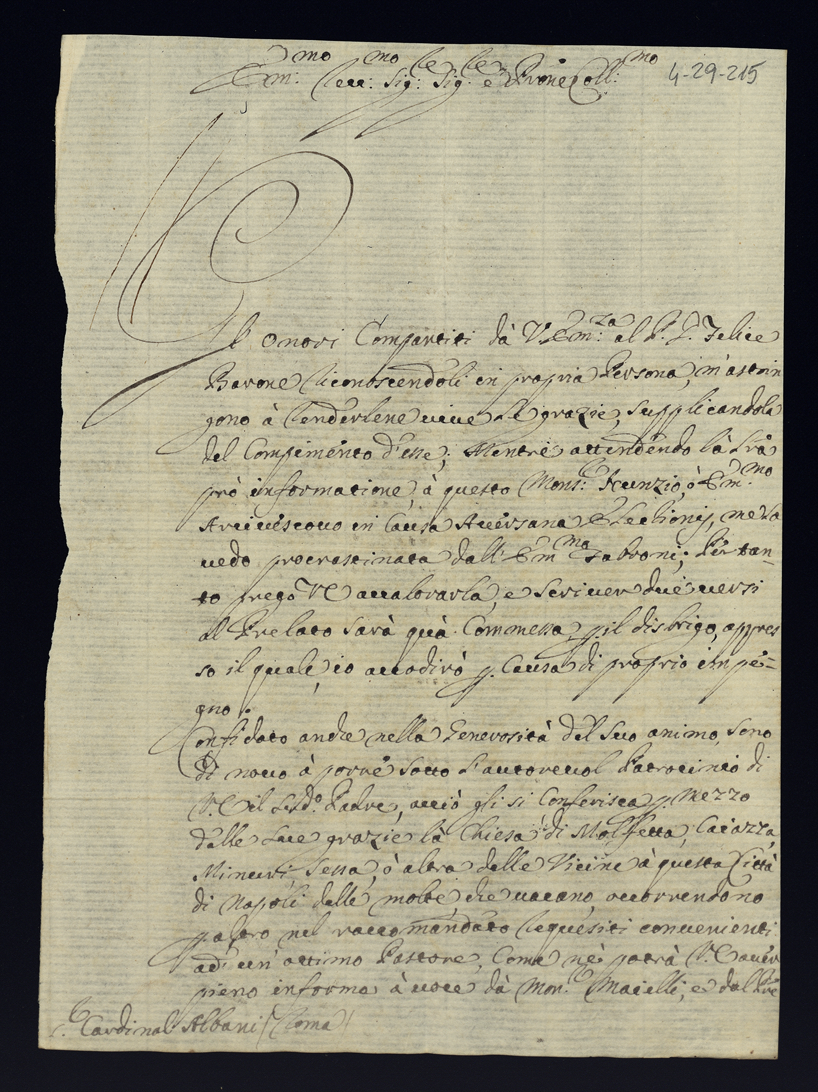 Em:mo Reu:mo Sig:re Sig:re e Prone Coll:mo
4-29-215
Gl' onori Compartiti dà V. Em:za al P. D. Felice
Barone riconoscendoli in propria Persona, m'astrin
gono à renderlene uiue le grazie, supplicandola
del Compimento d'esse; Mentre attendendo là
prò informatione, à questo Mons:r Nunzio, ò Em:mo
Arciuescouo in Causa Auersana Electionis, me la
uedo procrastinata dall' Em:mo Fabroni; Per tan-
to prego V.E. aualorarla, e scriuer due uersi
al Prelato sarà quà Commessa p. il disbrigo, appres
so il quale io accudirò p. Causa di proprio impe-
gno.
Confidato anche nella Generosità del suo animo, sono
di nouo à porre sotto l'autoreuol Patrocinio di
V.E. il Sud.o Padre, acciò gli si Conferisca p. mezzo
delle sue grazie là Chiesa di Molfetta, Caiazza,
Minuri, Sessa, ò altra delle Vicine à questa Città
di Napoli delle molte, che uacano, occorrendono
p. altro nel raccomandato requisiti conuenienti
ad' un' ottimo Pastore, Come ne potrà V.E. auer
pieno informo à uoce dà Mon.r Maielli, e dal
Cardinal Albani (Roma)